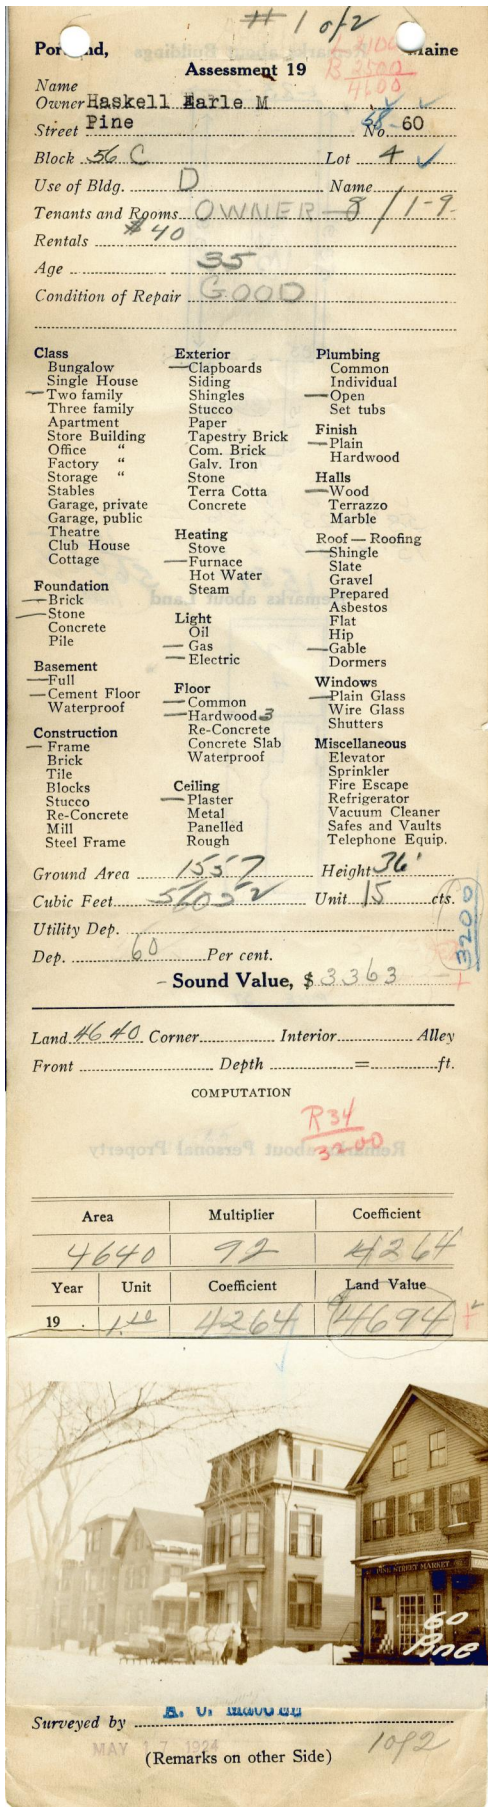 # 1 of 2
Portland, Maine
Assessment 19
B 2500
Name
Owner Haskell Earle M
Street Pine 58- No. 60
Block 56 C Lot 4
Use of Bldg. D Name
Tenants and Rooms OWNER - 8 / 1-9-
Rentals $40
Age 35
Condition of Repair GOOD
Class
Bungalow
Single House
Two family
Three family
Apartment
Store Building
Office "
Factory "
Storage "
Stables
Garage, private
Garage, public
Theatre
Club House
Cottage
Foundation
Brick
Stone
Concrete
Pile
Basement
Full
Cement Floor
Waterproof
Construction
Frame
Brick
Tile
Blocks
Stucco
Re-Concrete
Mill
Steel Frame
Exterior
Clapboards
Siding
Shingles
Stucco
Paper
Tapestry Brick
Com. Brick
Galv. Iron
Stone
Terra Cotta
Concrete
Heating
Stove
Furnace
Hot Water
Steam
Light
Oil
Gas
Electric
Floor
Common
Hardwood 3
Re-Concrete
Concrete Slab
Waterproof
Ceiling
Plaster
Metal
Panelled
Rough
Plumbing
Common
Individual
Open
Set tubs
Finish
Plain
Hardwood
Halls
Wood
Terrazzo
Marble
Roof — Roofing
Shingle
Slate
Gravel
Prepared
Asbestos
Flat
Hip
Gable
Dormers
Windows
Plain Glass
Wire Glass
Shutters
Miscellaneous
Elevator
Sprinkler
Fire Escape
Refrigerator
Vacuum Cleaner
Safes and Vaults
Telephone Equip.
Ground Area 1557 Height 36'
Cubic Feet 56052 Unit 15 cts.
3200
Utility Dep.
Dep. 60 Per cent.
Sound Value, $ 3363
Land 4640 Corner Interior Alley
Front Depth = ft.
COMPUTATION
R34
3200
Remarks about Personal Property
Area Multiplier Coefficient
4640 92 4264
Year Unit Coefficient Land Value
19 1.10 4264 4694
PINE STREET MARKET
60
Pine
Surveyed by
MAY 17 1924
(Remarks on other Side)
1 of 2